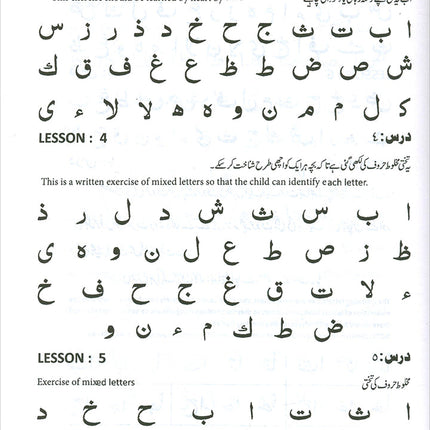 ا ب ت ث ج ح خ د ذ ر ز س
ش ص ض ط ظ ع غ ف ق ك
ک ل م ن و ه ھ لا ء ی
LESSON : 4 درس : ٤
یہ تختی مخلوط حروف کی لکھی گئی ہے تاکہ بچہ ہر ایک کو اچھی طرح شناخت کر سکے۔
This is a written exercise of mixed letters so that the child can identify each letter.
ا ب س ث ش د ل ر ذ
ظ ز ص ط ع ل ن و ه ی
ء لا ت ق غ ج ح ف خ
ض ط ك م ء ن و
LESSON : 5 درس : ٥
Exercise of mixed letters مخلوط حروف کی تختی
ا ث ت ا ب ح ج خ د